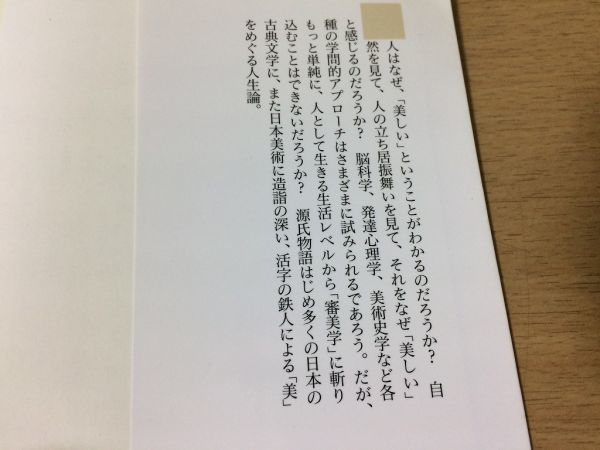 人はなぜ、「美しい」ということがわかるのだろうか？　自
然を見て、人の立ち居振舞いを見て、それをなぜ「美しい」
と感じるのだろうか？　脳科学、発達心理学、美術史学など各
種の学問的アプローチはさまざまに試みられるであろう。だが、
もっと単純に、人として生きる生活レベルから「審美学」に斬り
込むことはできないだろうか？　源氏物語はじめ多くの日本の
古典文学に、また日本美術に造詣の深い、活字の鉄人による「美」
をめぐる人生論。